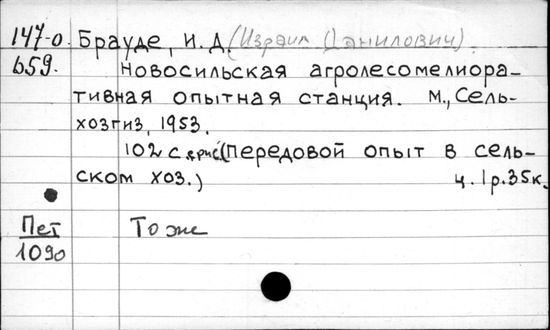 147-0 Брауде, И. Д. (Израил Данилович).
Б59. Новосильская агролесомелиора-
тивная опытная станция. М., Сель-
хозгиз, 1953.
102 с. (Передовой опыт в сель-
ском хоз.) ц. 1р.35к.
Пет То же
1090